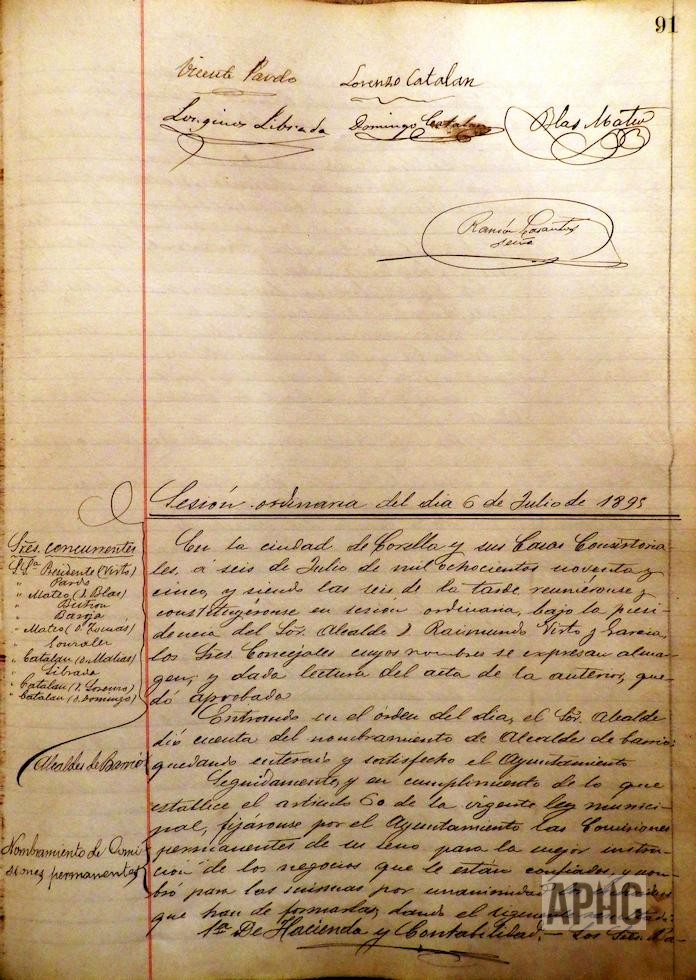 91
Vicente Pardo Lorenzo Catalan
Longinos Librada Domingo Catalan Blas Mateo
Ramón
Sesión ordinaria del dia 6 de Julio de 1895
Sres. concurrentes
Presidente (Virto)
" Pardo
" Mateo (D. Blas)
" Butron
" Barja
" Mateo (D. Tomas)
" Gonzalez
" Catalan (D. Matias)
" Librada
" Catalan (D. Lorenzo)
" Catalan (D. Domingo)
En la ciudad de Corella y sus Casas Consistoria-
les, á seis de Julio de mil ochocientos noventa y
cinco, y siendo las seis de la tarde reuniéronse y
constituyeronse en sesion ordinaria, bajo la presi-
dencia del Sor. Alcalde D. Raimundo Virto y Garcia,
los Sres. Concejales cuyos nombres se expresan al mar-
gen, y dada lectura del acta de la anterior, que-
dó aprobada
Alcaldes de Barrio
Entrando en el órden del dia, el Sor. Alcalde
dió cuenta del nombramiento de Alcalde de barrio
quedando enterado y satisfecho el Ayuntamiento
Nombramiento de Comi
siones permanentes
Seguidamente, y en cumplimiento de lo que
establece el articulo 60 de la vigente ley munici-
pal, fijáronse por el Ayuntamiento las Comisiones
permanentes de su seno para la mejor instruc-
cion de los negocios que le están confiados, y nom-
bró para las mismas por unanimidad
que han de formarlas, dando el siguiente
1ª De Hacienda y Contabilidad.- Los Sres.
APHC